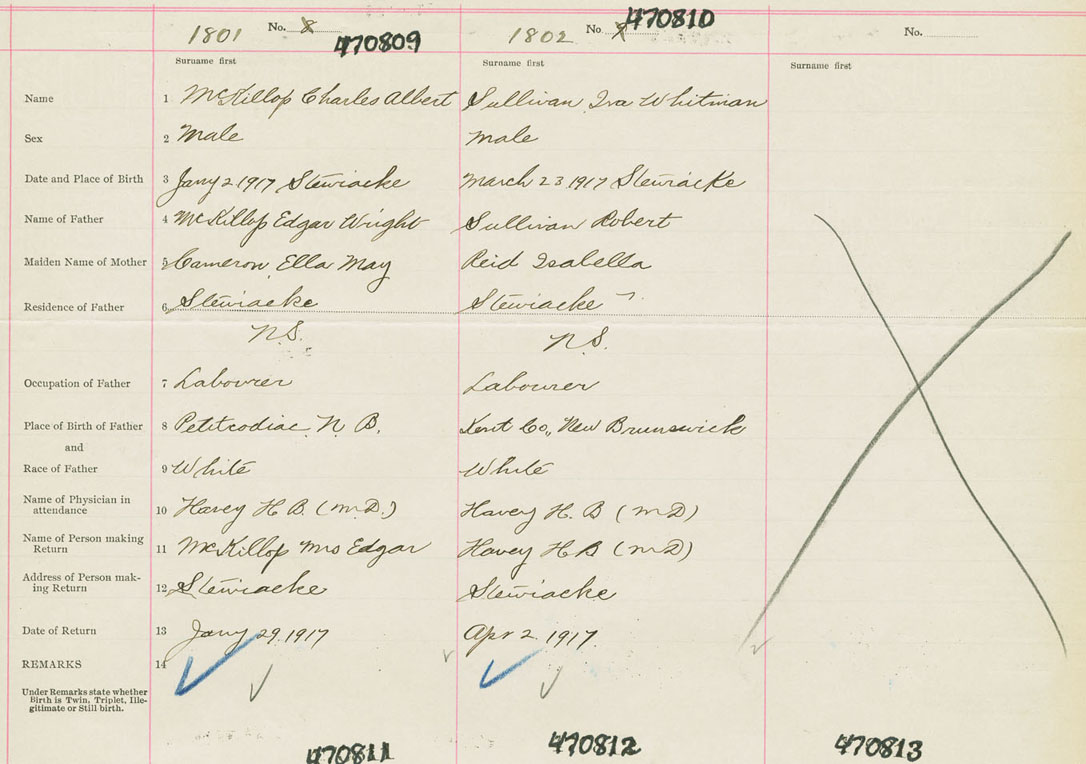 1801 No. 8 470809 1802 No 9 470810 No.
Surname first Surname first Surname first
Name 1 McKillop Charles Albert Sullivan Ira Whitman
Sex 2 Male male
Date and Place of Birth 3 Jany 2 1917 Stewiacke March 23 1917 Stewiacke
Name of Father 4 McKillop Edgar Wright Sullivan Robert
Maiden Name of Mother 5 Cameron Ella May Reid Isabella
Residence of Father 6 Stewiacke Stewiacke
N.S. N.S.
Occupation of Father 7 Labourer Labourer
Place of Birth of Father 8 Petitcodiac N. B. Kent Co., New Brunswick
and
Race of Father 9 White White
Name of Physician in
attendance 10 Havey H. B. (M.D.) Havey H. B (MD)
Name of Person making
Return 11 McKillop Mrs Edgar Havey H B (MD)
Address of Person mak-
ing Return 12 Stewiacke Stewiacke
Date of Return 13 Jany 29. 1917 Apr 2 1917.
REMARKS 14
Under Remarks state whether
Birth is Twin, Triplet, Ille-
gitimate or Still birth.
470811 470812 470813